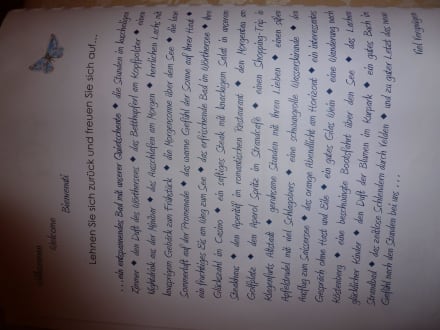 Willkommen
Welcome
Benvenuti
Lehnen Sie sich zurück und freuen Sie sich auf...
...ein entspannendes Bad mit unserer Quietscheente ◆ die Stunden im kuscheligen
Zimmer ◆ den Duft des Wörthersees ◆ das Betthupferl am Kopfpolster ◆ einen
Nightdrink aus der Minibar ◆ das Ausschlafen am Morgen ◆ herrlichen Lachs mit
knusprigem Gebäck zum Frühstück ◆ die Morgensonne über dem See ◆ die laue
Sommerluft auf der Promenade ◆ das warme Gefühl der Sonne auf Ihrer Haut ◆
ein fruchtiges Eis am Weg zum See ◆ das erfrischende Bad im Wörthersee ◆ Ihre
Glückszahl im Casino ◆ ein saftiges Steak mit knackigem Salat in unserem
Steakhaus ◆ den Aperitif im romantischen Restaurant ◆ den Morgentau am
Golfplatz ◆ den Aperol Spritz im Strandcafé ◆ einen Shopping-Trip in
Klagenfurts Altstadt ◆ geruhsame Stunden mit Ihren Lieben ◆ einen süßen
Apfelstrudel mit viel Schlagobers ◆ eine schwungvolle Wasserskirunde ◆ den
Ausflug zum Seltenen ◆ das orange Abendlicht am Horizont ◆ ein interessantes
Gespräch ohne Hast und Eile ◆ ein gutes Glas Wein ◆ eine Wanderung nach
◆ eine beschwingte Bootsfahrt über den See ◆ das Lachen
glücklicher Kinder ◆ den Duft der Blumen im Kurpark ◆ ein gutes Buch im
Strandbad ◆ das ziellose Schlendern durch Velden ◆ und zu guter Letzt das
Gefühl nach den Stunden bei uns ...
Viel Vergnügen